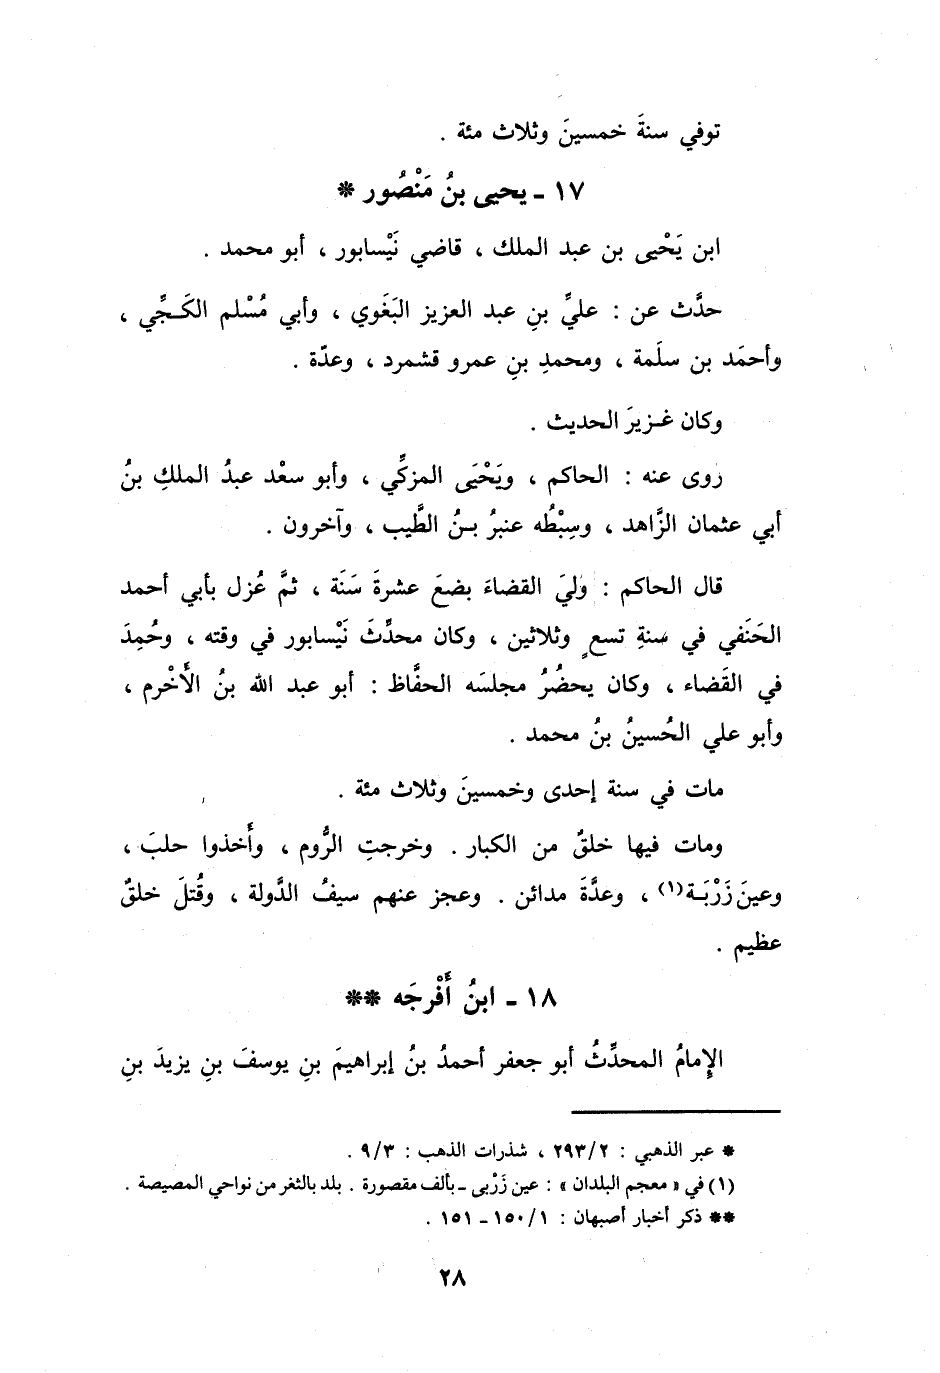 توفي سنةَ خمسينَ وثلاث مئة .
١٧ ـ يحيى بنُ مَنْصُور *
ابن يَحْيى بن عبد الملك ، قاضي نَيْسابور ، أبو محمد .
حدَّث عن : عليِّ بنِ عبد العزيز البَغَوي ، وأبي مُسْلم الكَجِّي ،
وأحمَد بن سلَمة ، ومحمدِ بنِ عمرو قشمرد ، وعدّة .
وكان غزيرَ الحديث .
روى عنه : الحاكم ، ويَحْيَى المزكِّي ، وأبو سعْد عبدُ الملكِ بنُ
أبي عثمان الزَّاهد ، وسِبْطُه عنبرُ بنُ الطَّيب ، وآخرون .
قال الحاكم : وليَ القضاءَ بضعَ عشرةَ سَنَة ، ثمَّ عُزل بأبي أحمد
الحَنَفي في سنةِ تسعٍ وثلاثين ، وكان محدِّثَ نَيْسابور في وقته ، وحُمِدَ
في القَضاء ، وكان يحضُرُ مجلسَه الحفَّاظ : أبو عبد الله بنُ الأَخْرم ،
وأبو علي الحُسينُ بنُ محمد .
مات في سنة إحدى وخمسينَ وثلاث مئة .
ومات فيها خلقٌ من الكبار . وخرجتِ الرُّوم ، وأَخذوا حلبَ ،
وعينَ زَرْبَة(١) ، وعدَّةَ مدائن . وعجز عنهم سيفُ الدَّولة ، وقُتلَ خلقٌ
عظيم .
١٨ ـ ابنُ أَفْرجَه **
الإِمامُ المحدِّثُ أبو جعفر أحمدُ بنُ إبراهيمَ بنِ يوسفَ بنِ يزيدَ بنِ
* عبر الذهبي : ٢٩٣/٢ ، شذرات الذهب : ٩/٣ .
(١) في « معجم البلدان » : عين زَرْبى ـ بألف مقصورة . بلد بالثغر من نواحي المصيصة .
** ذكر أخبار أصبهان : ١٥٠/١ ـ ١٥١ .
٢٨